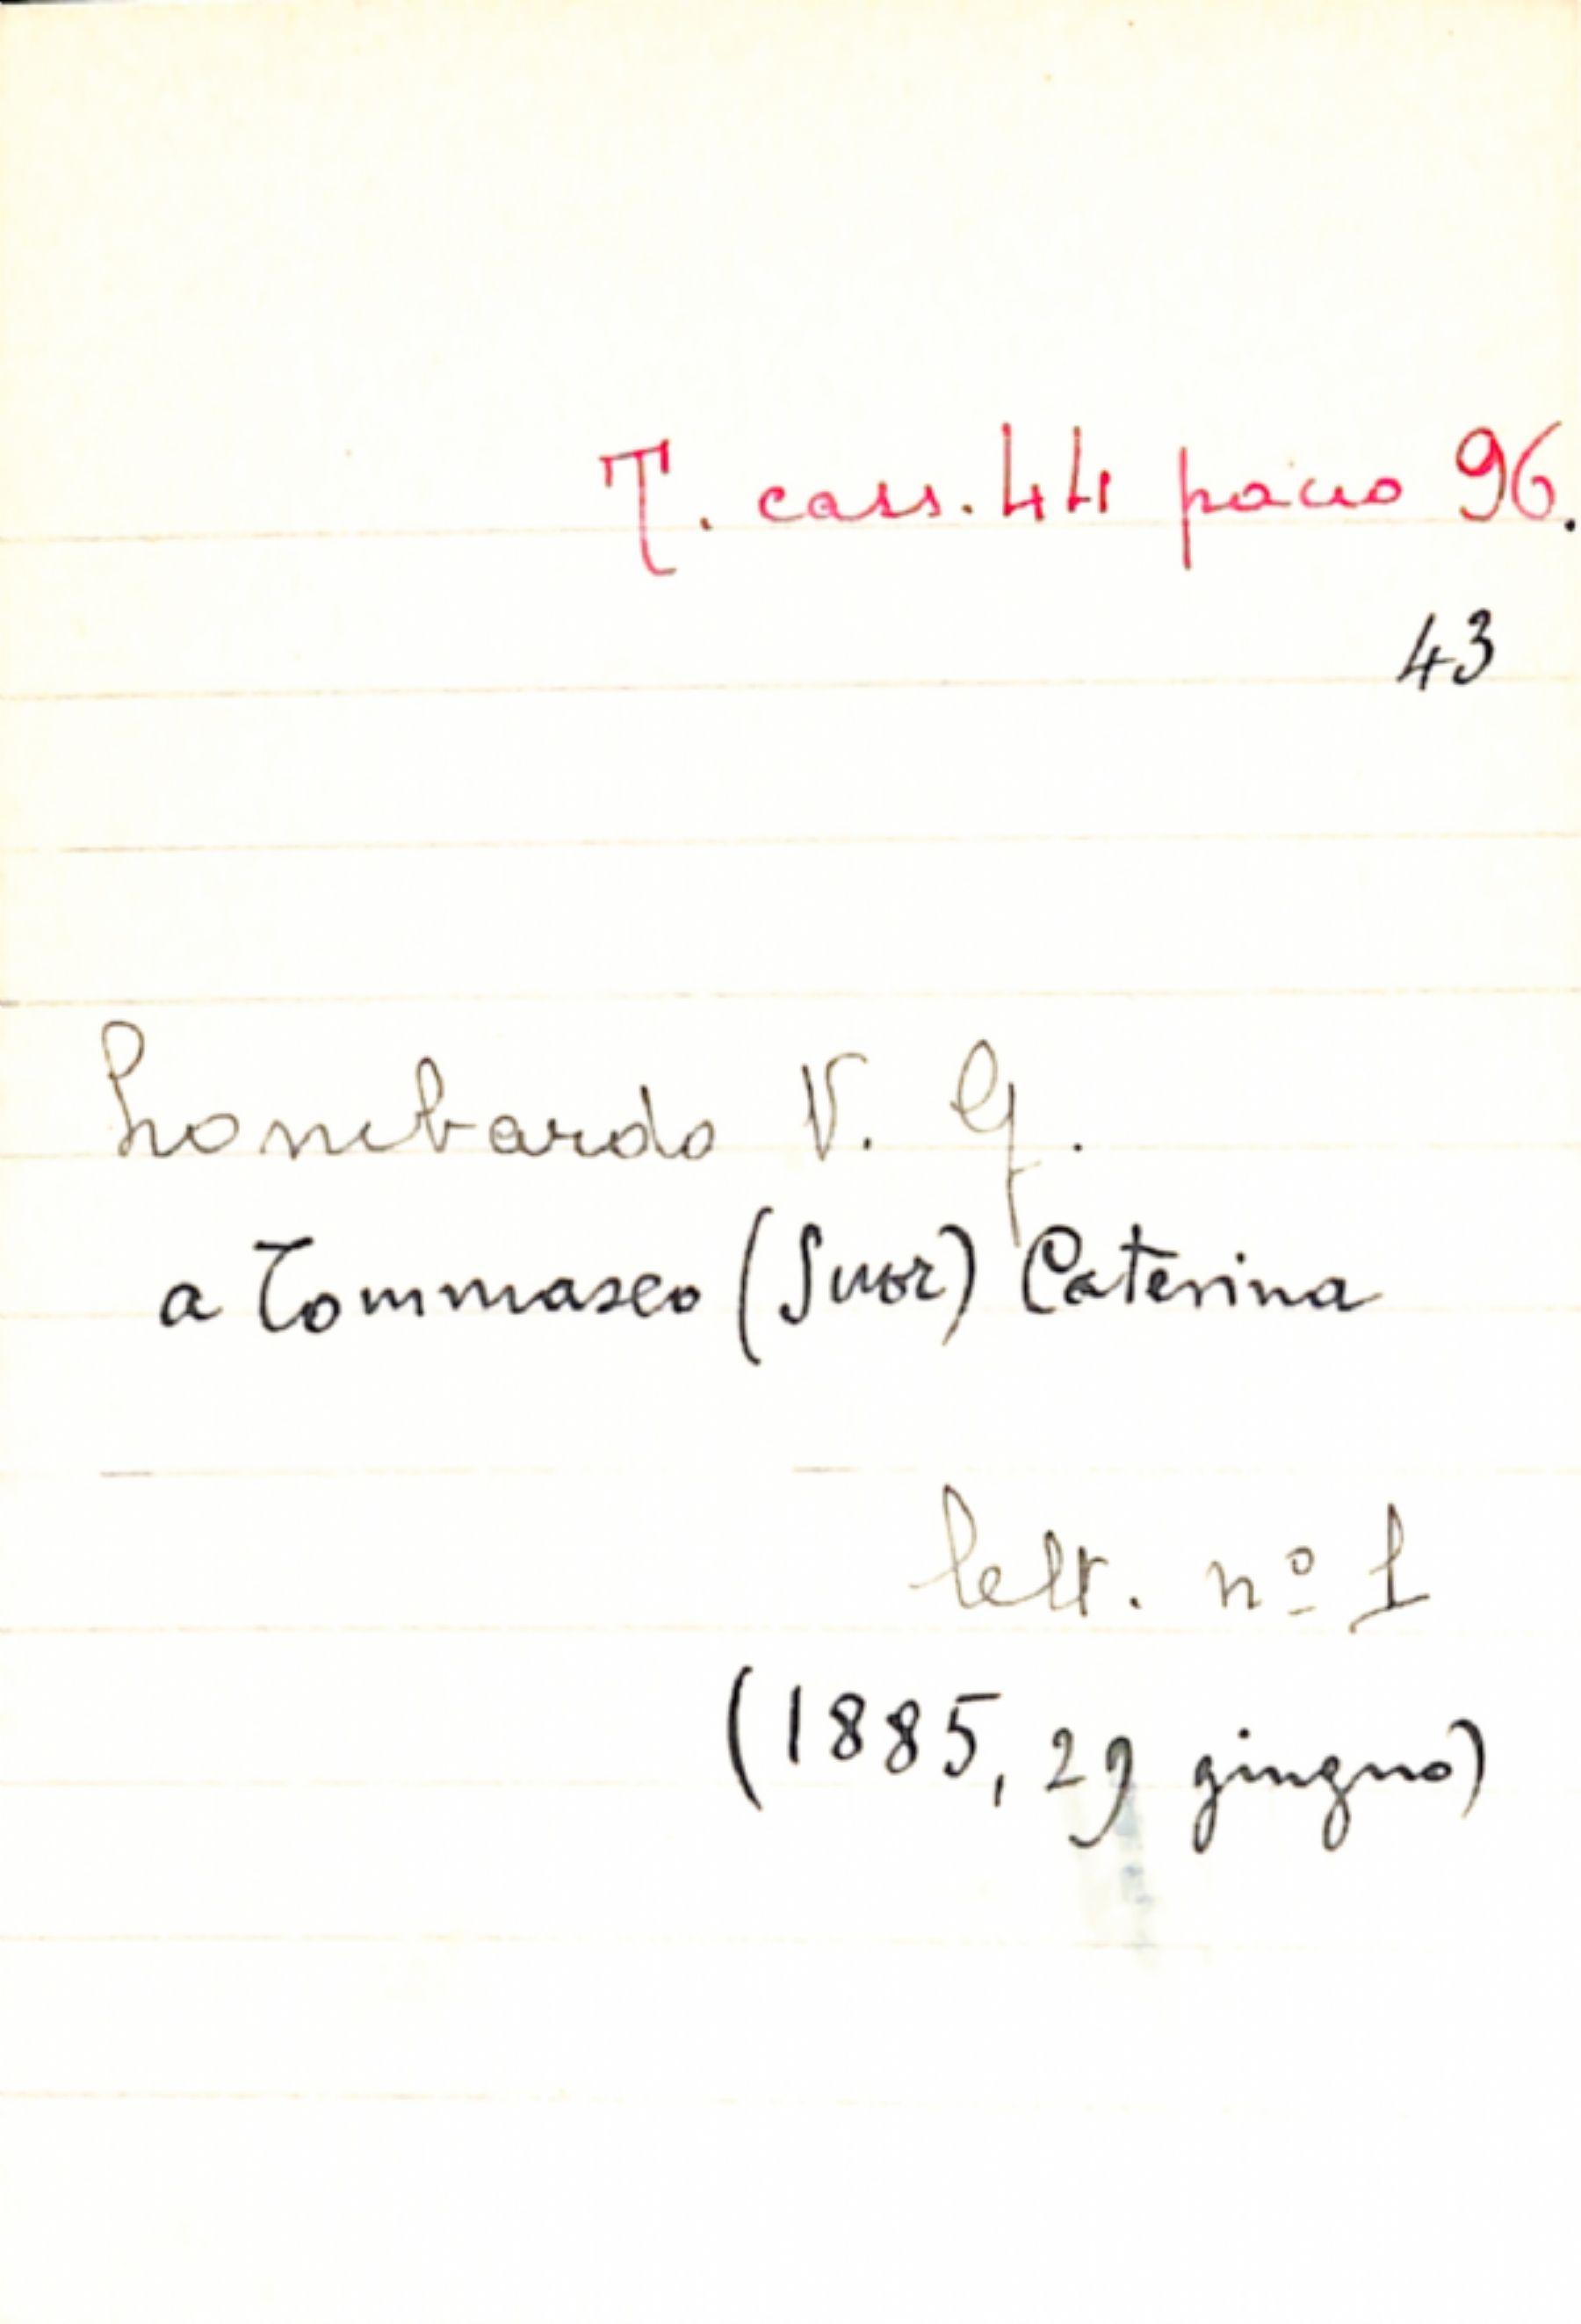 T. cass. 44 pacco 96.
43
Lombardo V. G.
a Tommaseo (Suor) Caterina
lett. nº 1
(1885, 29 giugno)